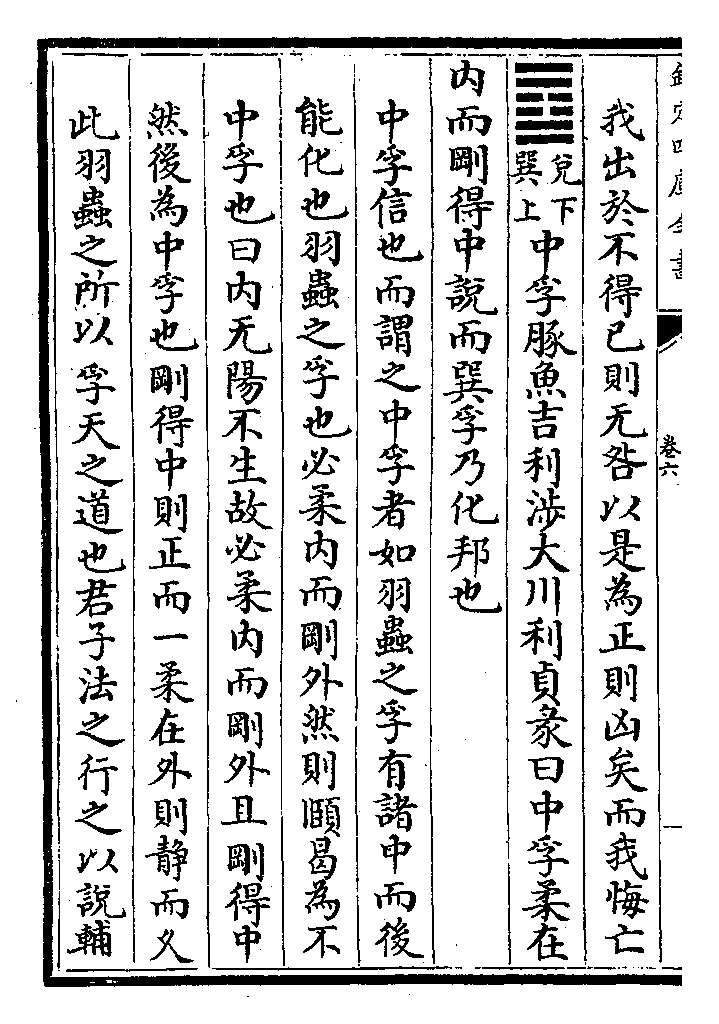 欽定四庫全書
卷六
我出於不得已則无咎以是為正則凶矣而我悔亡
䷼兌下巽上中孚豚魚吉利涉大川利貞彖曰中孚柔在
内而剛得中說而巽孚乃化邦也
中孚信也而謂之中孚者如羽蟲之孚有諸中而後
能化也羽蟲之孚也必柔内而剛外然則頤曷為不
中孚也曰内无陽不生故必柔内而剛外且剛得中
然後為中孚也剛得中則正而一柔在外則静而久
此羽蟲之所以孚天之道也君子法之行之以說輔